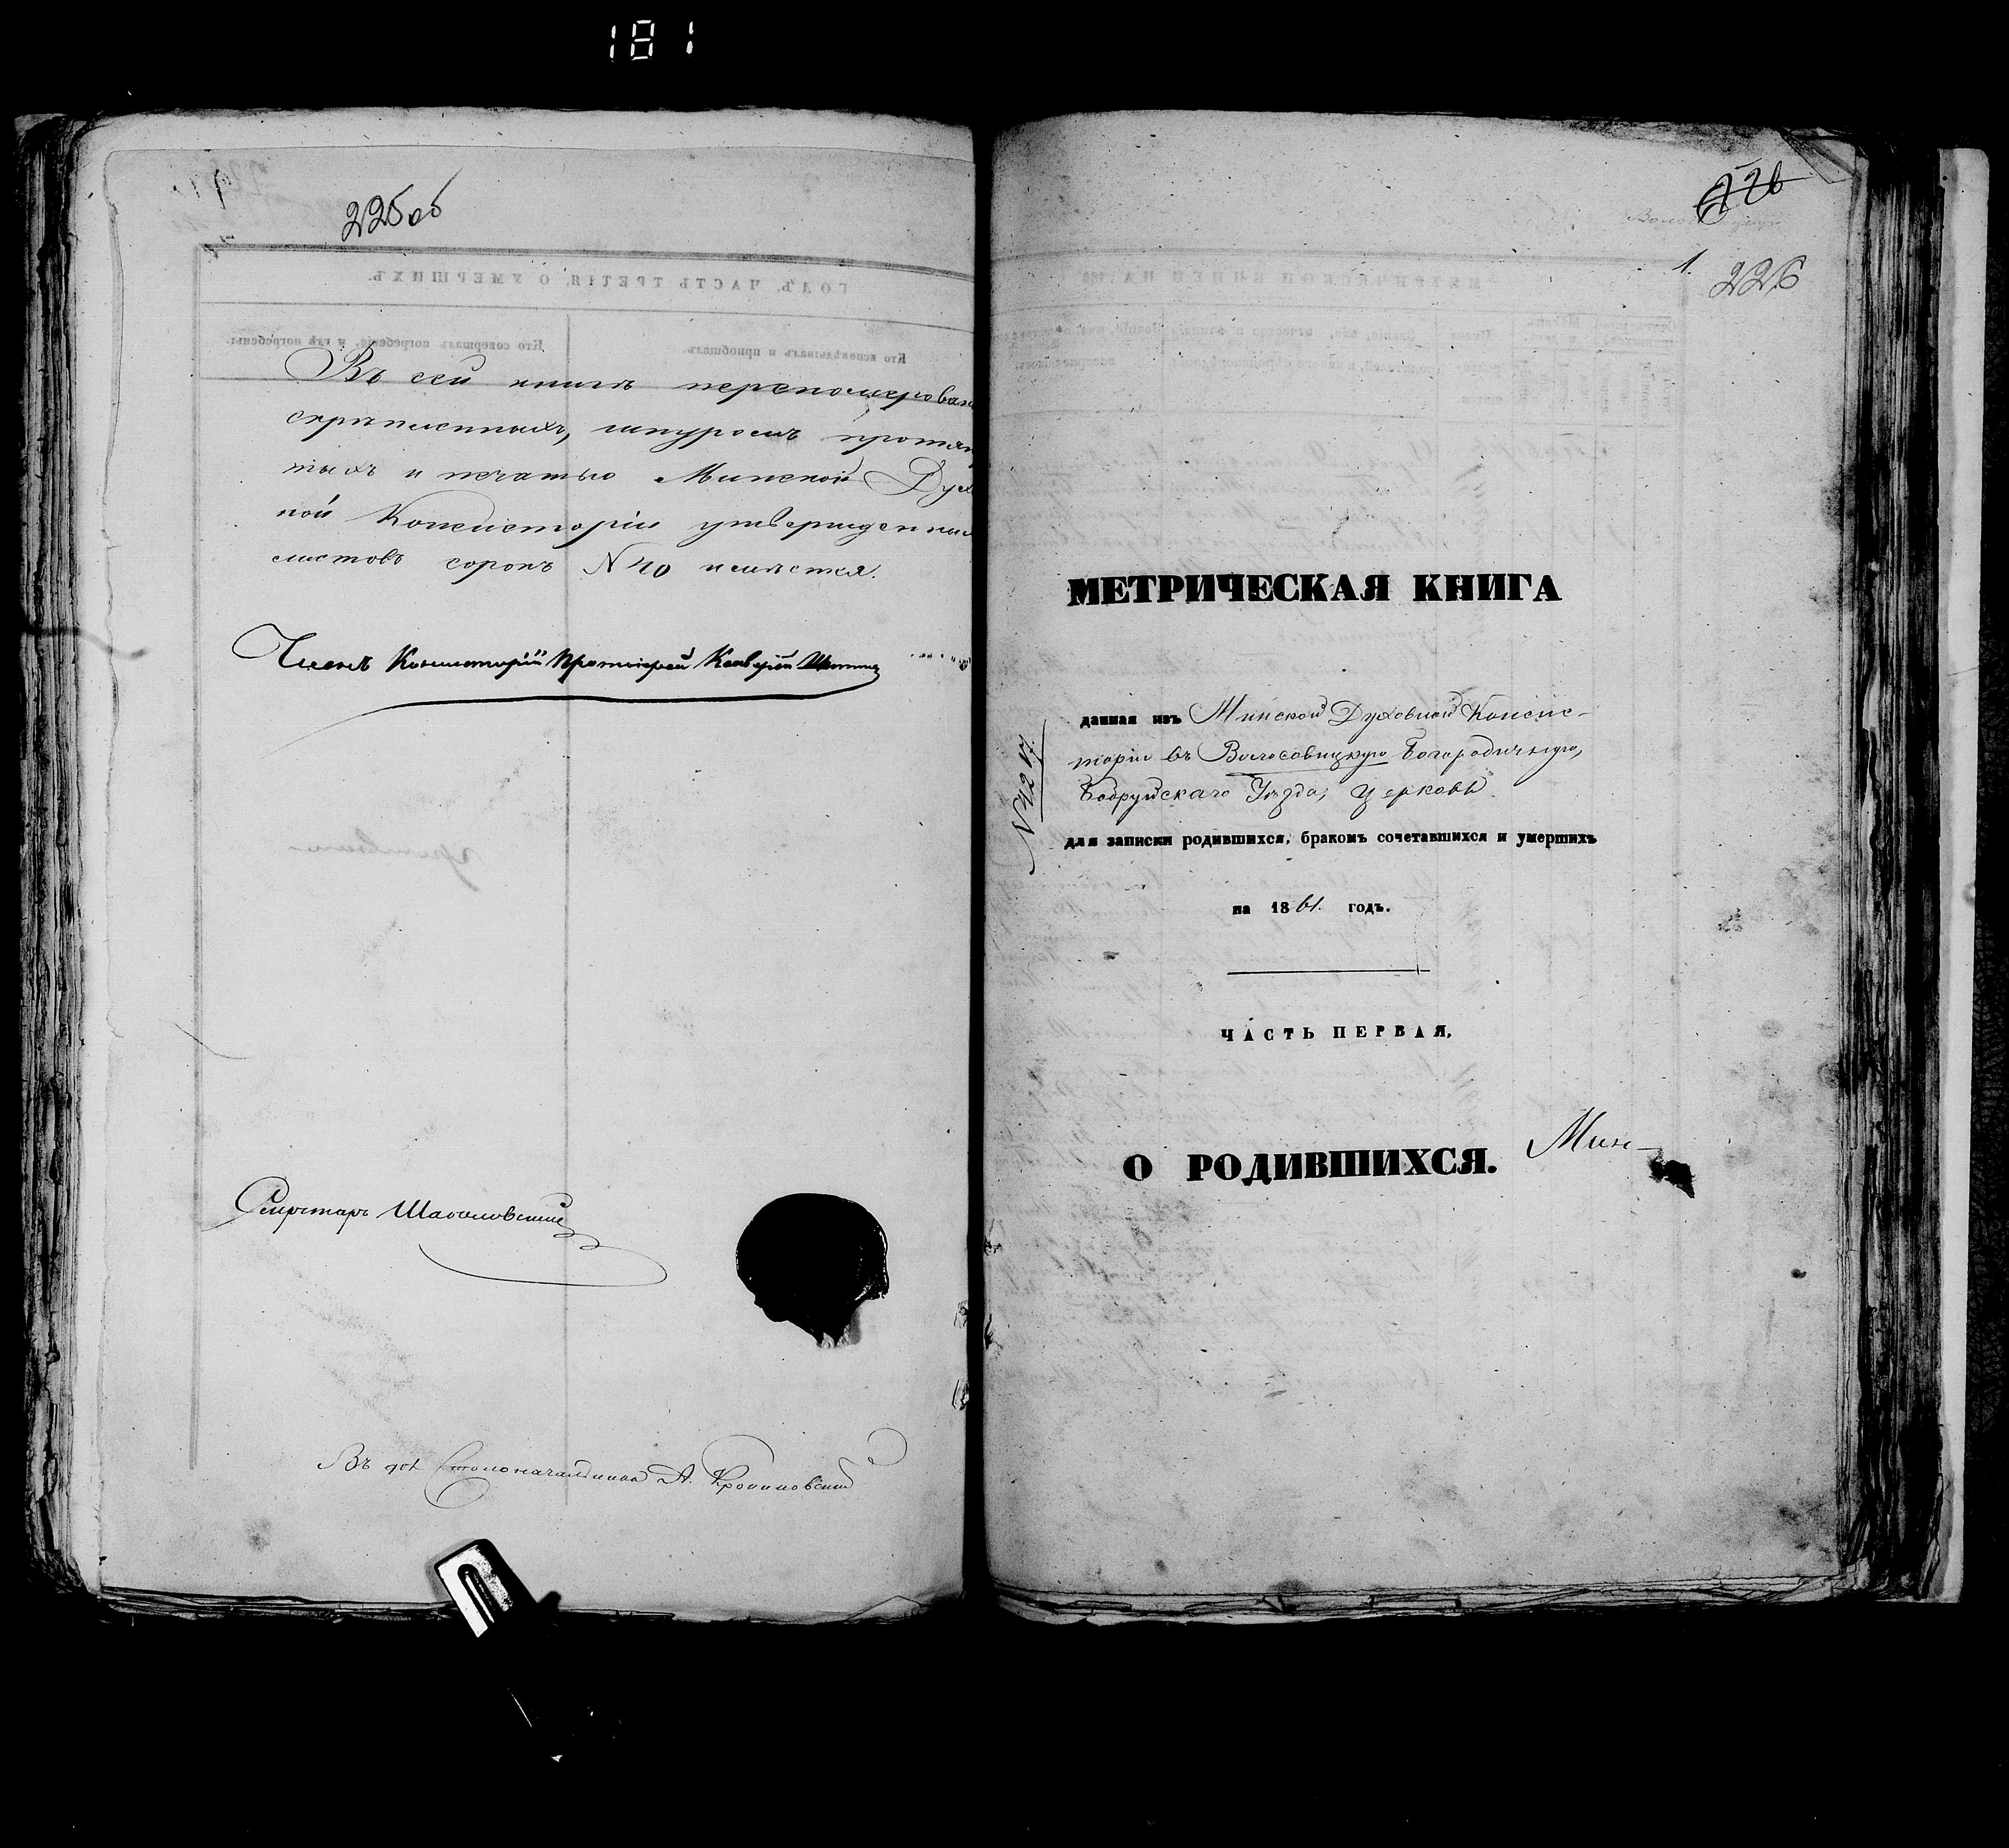 181
225об
Въ сей книгѣ перенумерован
скрѣпленныхъ, шнуромъ протян
тыхъ и печатью Минской Дух
ной Консисторіи утвержденны
листовъ сорокъ N 40 имѣется.
Членъ Консисторіи Протоіерей
Секретарь
Въ дол. Столоначальника А.
226
1.
226
МЕТРИЧЕСКАЯ КНИГА
данная изъ Минской Духовной Консис-
торіи въ Волосовицкую Богородичную,
Бобруйскаго Уѣзда, церковь
для записки родившихся, бракомъ сочетавшихся и умершихъ
на 1861. годъ.
ЧАСТЬ ПЕРВАЯ,
О РОДИВШИХСЯ.
Мин-